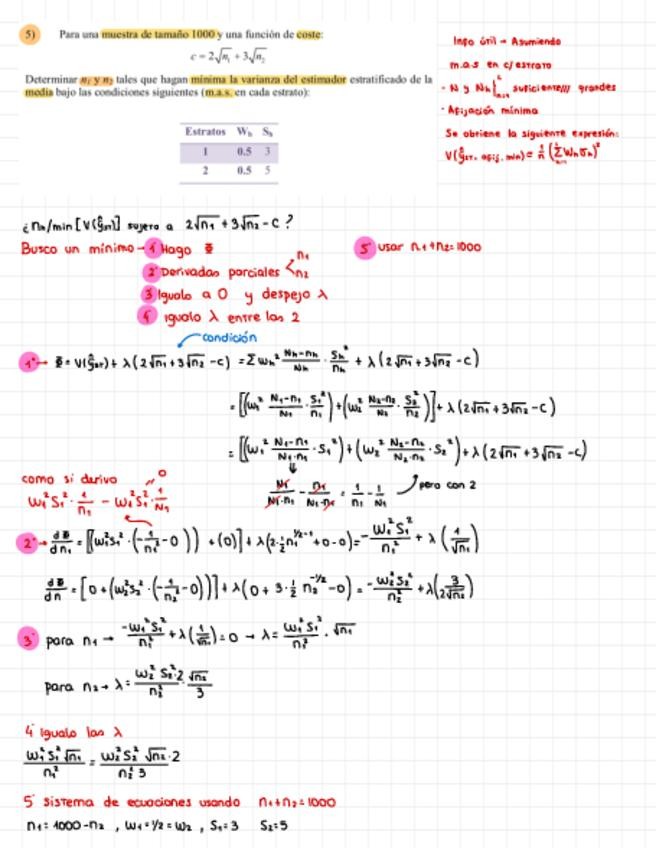 5) Para una muestra de tamaño 1000 y una función de coste:
c = 2√n₁ + 3√n₂
Determinar n₁ y n₂ tales que hagan mínima la varianza del estimador estratificado de la
media bajo las condiciones siguientes (m.a.s. en cada estrato):
Estratos Wₕ Sₕ
1 0.5 3
2 0.5 5
Info útil → Asumiendo
m.a.s en c/estrato
- N y Nₕ suficiente/// grandes
· Afijación mínima
Se obtiene la siguiente expresión:
V(ŷst. afij. min) = 1/n (Σ Wₕσₕ)²
¿ nₕ/min [V(ŷst)] sujeto a 2√n₁ + 3√n₂ - C ?
Busco un mínimo → 1º Hago Φ
2º Derivadas parciales < n₁ n₂
3º Igualo a 0 y despejo λ
4º igualo λ entre las 2
5º usar n₁+n₂=1000
condición
1º → Φ = V(ŷst) + λ(2√n₁+3√n₂-c) = Σ Wₕ² (Nₕ-nₕ)/Nₕ · Sₕ²/nₕ + λ(2√n₁+3√n₂-c)
= [(W₁² (N₁-n₁)/N₁ · S₁²/n₁) + (W₂² (N₂-n₂)/N₂ · S₂²/n₂)] + λ(2√n₁+3√n₂-c)
= [(W₁² (N₁-n₁)/(N₁·n₁) · S₁²) + (W₂² (N₂-n₂)/(N₂·n₂) · S₂²) + λ(2√n₁+3√n₂-c)
N₁/(N₁·n₁) - n₁/(N₁·n₁) = 1/n₁ - 1/N₁
pero con 2
como si derivo
W₁²S₁² · 1/n₁ - W₁²S₁² · 1/N₁ = 0
2º → dΦ/dn₁ = [(W₁²S₁² · (-1/n₁² - 0)) + (0)] + λ(2·½ n₁^(1/2-1) + 0-0) = -W₁²S₁²/n₁² + λ(1/√n₁)
dΦ/dn = [0 + (W₂²S₂² · (-1/n₂² - 0))] + λ(0 + 3·½ n₂^(-1/2) - 0) = -W₂²S₂²/n₂² + λ(3/(2√n₂))
3º para n₁ → -W₁²S₁²/n₁² + λ(1/√n₁) = 0 → λ = W₁²S₁²/n₁² · √n₁
para n₂ → λ = W₂² S₂²·2/n₂² · √n₂/3
4º Igualo las λ
W₁²S₁²√n₁/n₁² = W₂²S₂²√n₂·2/(n₂²·3)
5º sistema de ecuaciones usando n₁+n₂=1000
n₁ = 1000-n₂ , W₁=1/2=W₂ , S₁=3 S₂=5